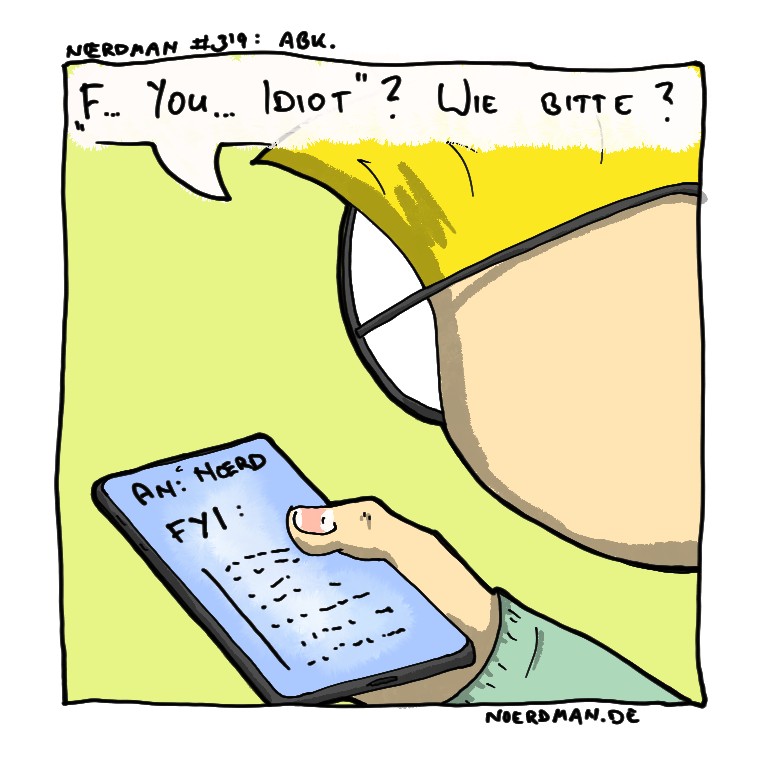 NŒRDMAN #319: ABK.
„F... YOU... IDIOT"? WIE BITTE?
AN: NŒRD
FYI:
NOERDMAN.DE